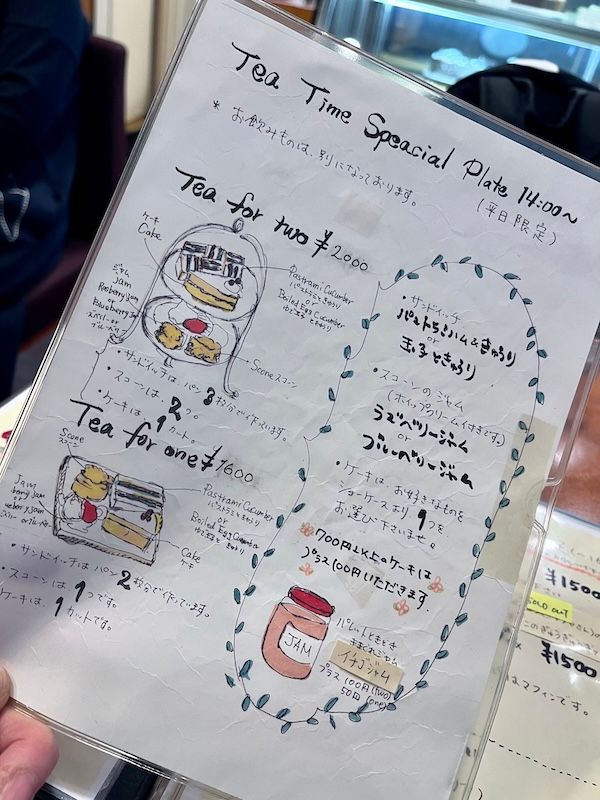 Tea Time Speacial Plate 14:00~
(平日限定)
* お飲みものは、別になっております。
Tea for two ¥2000
ケーキ
Cake
ジャム
Jam
or
ブルーベリー
Pastrami Cucumber
パストラミときゅうり
or
Boiled Egg Cucumber
ゆで玉子ときゅうり
Scone スコーン
・サンドイッチは パン3枚分で作っています。
・スコーンは、2つ。
・ケーキは、1カット。
Tea for one ¥1600
Scone
スコーン
Jam
or
Pastrami Cucumber
パストラミときゅうり
or
Boiled Egg Cucumber
ゆで玉子ときゅうり
Cake
ケーキ
・サンドイッチは パン2枚分で作っています。
スコーンは 1つです。
ケーキは、1カットです。
・サンドイッチ
パストラミハム&きゅうり
or
玉子ときゅうり
・スコーンのジャム
(ホイップクリーム付きです。)
ラズベリージャム
or
ブルーベリージャム
・ケーキは、お好きなものを
ショーケースより 1つを
お選び下さいませ。
700円以上のケーキは
プラス100円いただきます。
JAM
イチゴジャム
プラス 100円(two)
50円(one)
¥1500
SOLD OUT
¥1500
はマフィンです。